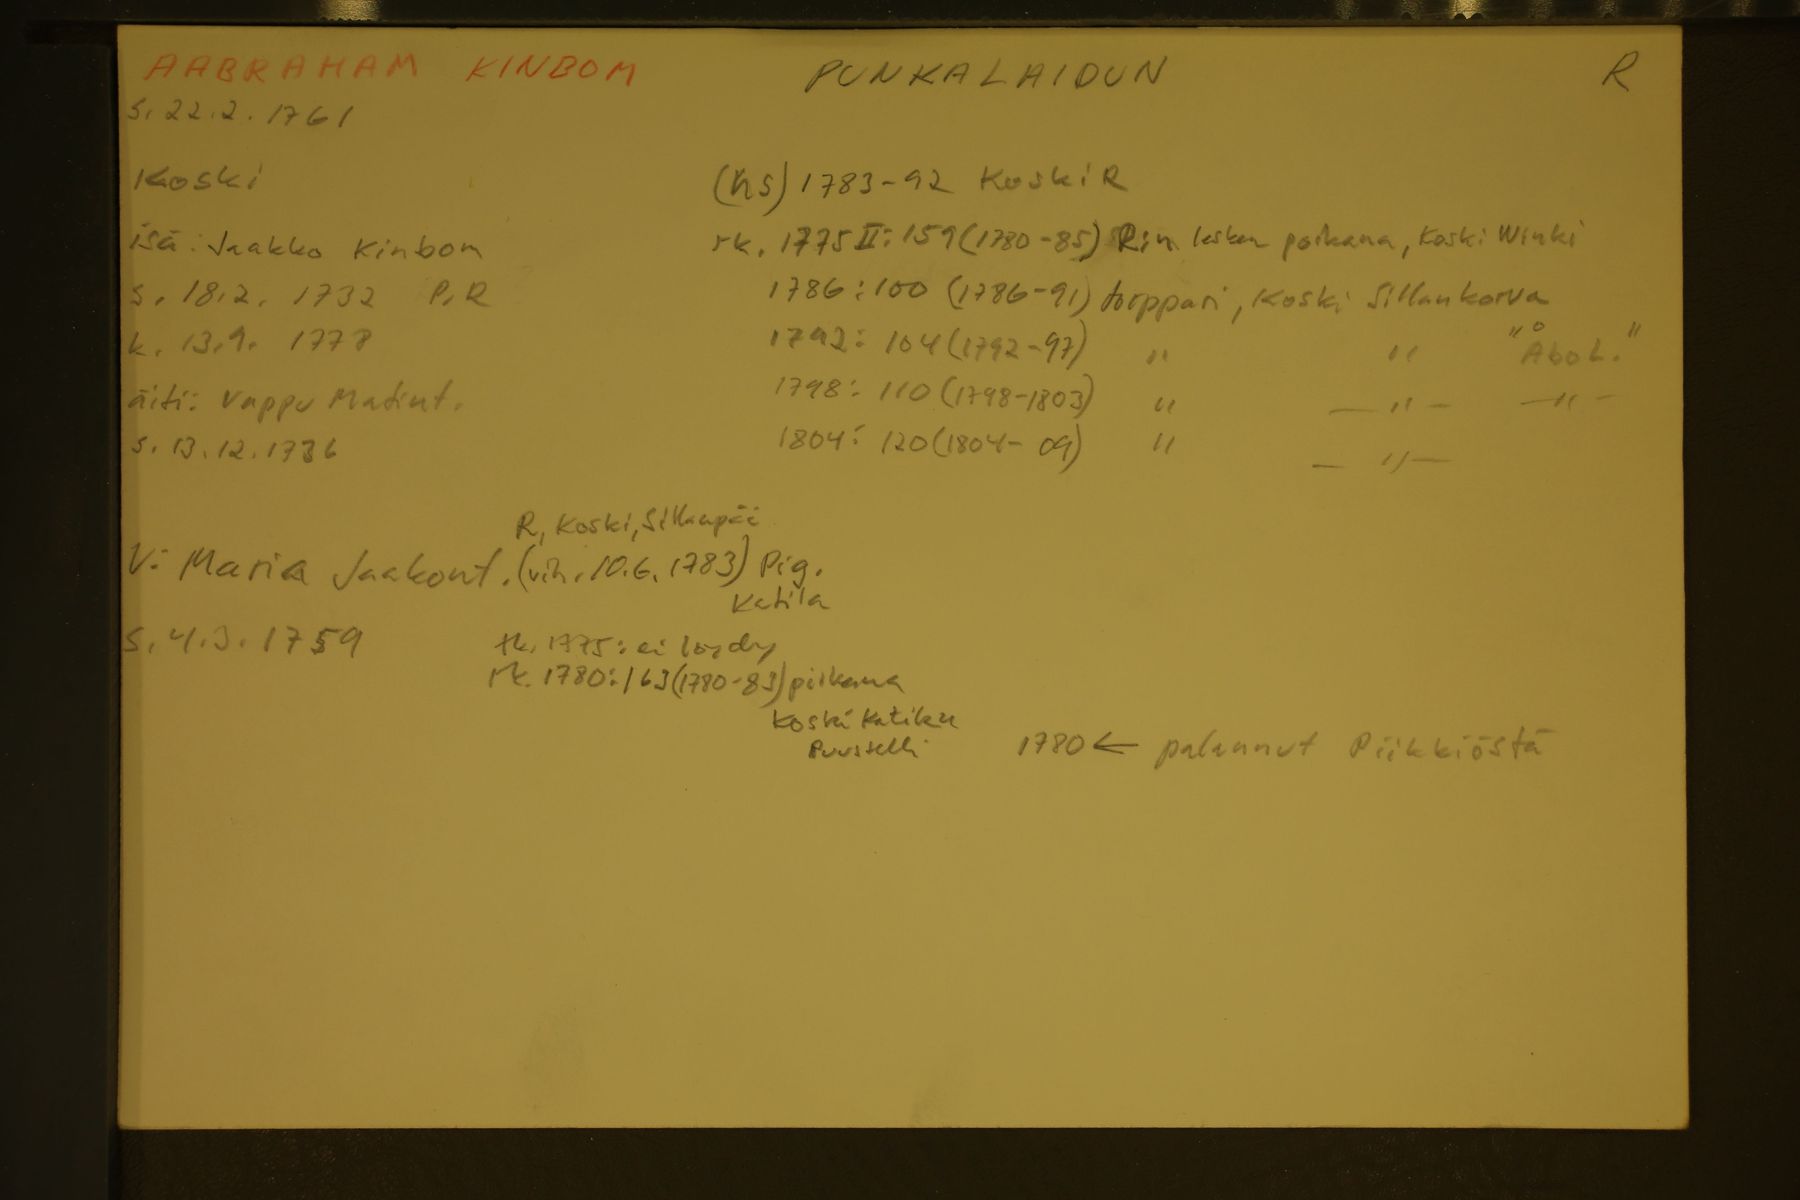 AABRAHAM KINBOM PUNKALAIDUN R
s. 22.2. 1761
Koski (hs) 1783-92 Koski R
isä: Jaakko Kinbom rk. 1775 II: 159 (1780-85) R:n lesken poikana, Koski Winki
s. 18.2. 1732 P, R 1786: 100 (1786-91) torppari, Koski Sillankorva
k. 13.9. 1778 1792: 104 (1792-97) " " "Åbol."
äiti: Vappu Matint. 1798: 110 (1798-1803) " —"— —"—
s. 13.12.1736 1804: 120 (1804-09) " —"—
R, Koski, Sillanpää
V: Maria Jaakont. (vih. 10.6. 1783) Pig.
Katila
s. 4.3. 1759 rk. 1775: ei löydy
rk. 1780: 163 (1780-83) piikana
Koski Katilan
Puustelli 1780 ← palannut Piikkiöstä